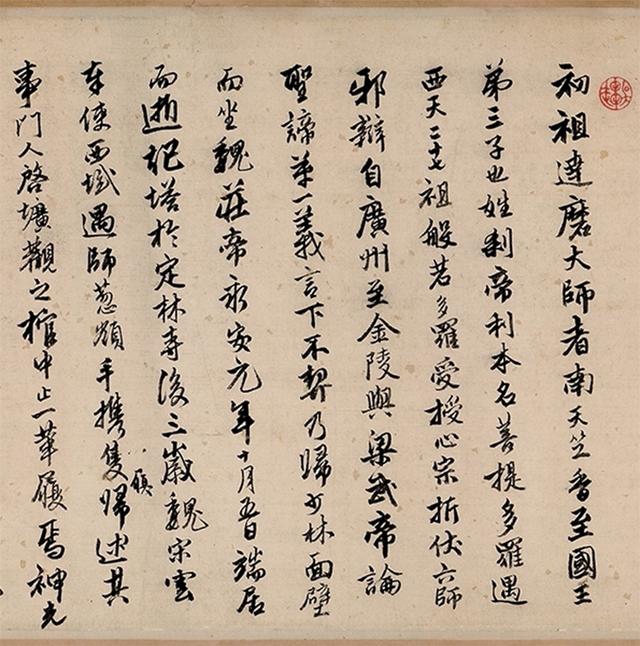 初祖達磨大師者南天竺香至國王
弟三子也姓剎帝利本名菩提多羅遇
西天二十七祖般若多羅受授心宗折伏六師
邪辯自廣州至金陵與梁武帝論
聖諦第一義言下不契乃歸少林面壁
而坐魏莊帝永安元年十月五日端居
而逝記塔於定林寺後三歲魏宋雲
奉使西域遇師葱嶺手携隻歸述其
履
事門人啓壙觀之棺中止一革履焉神光